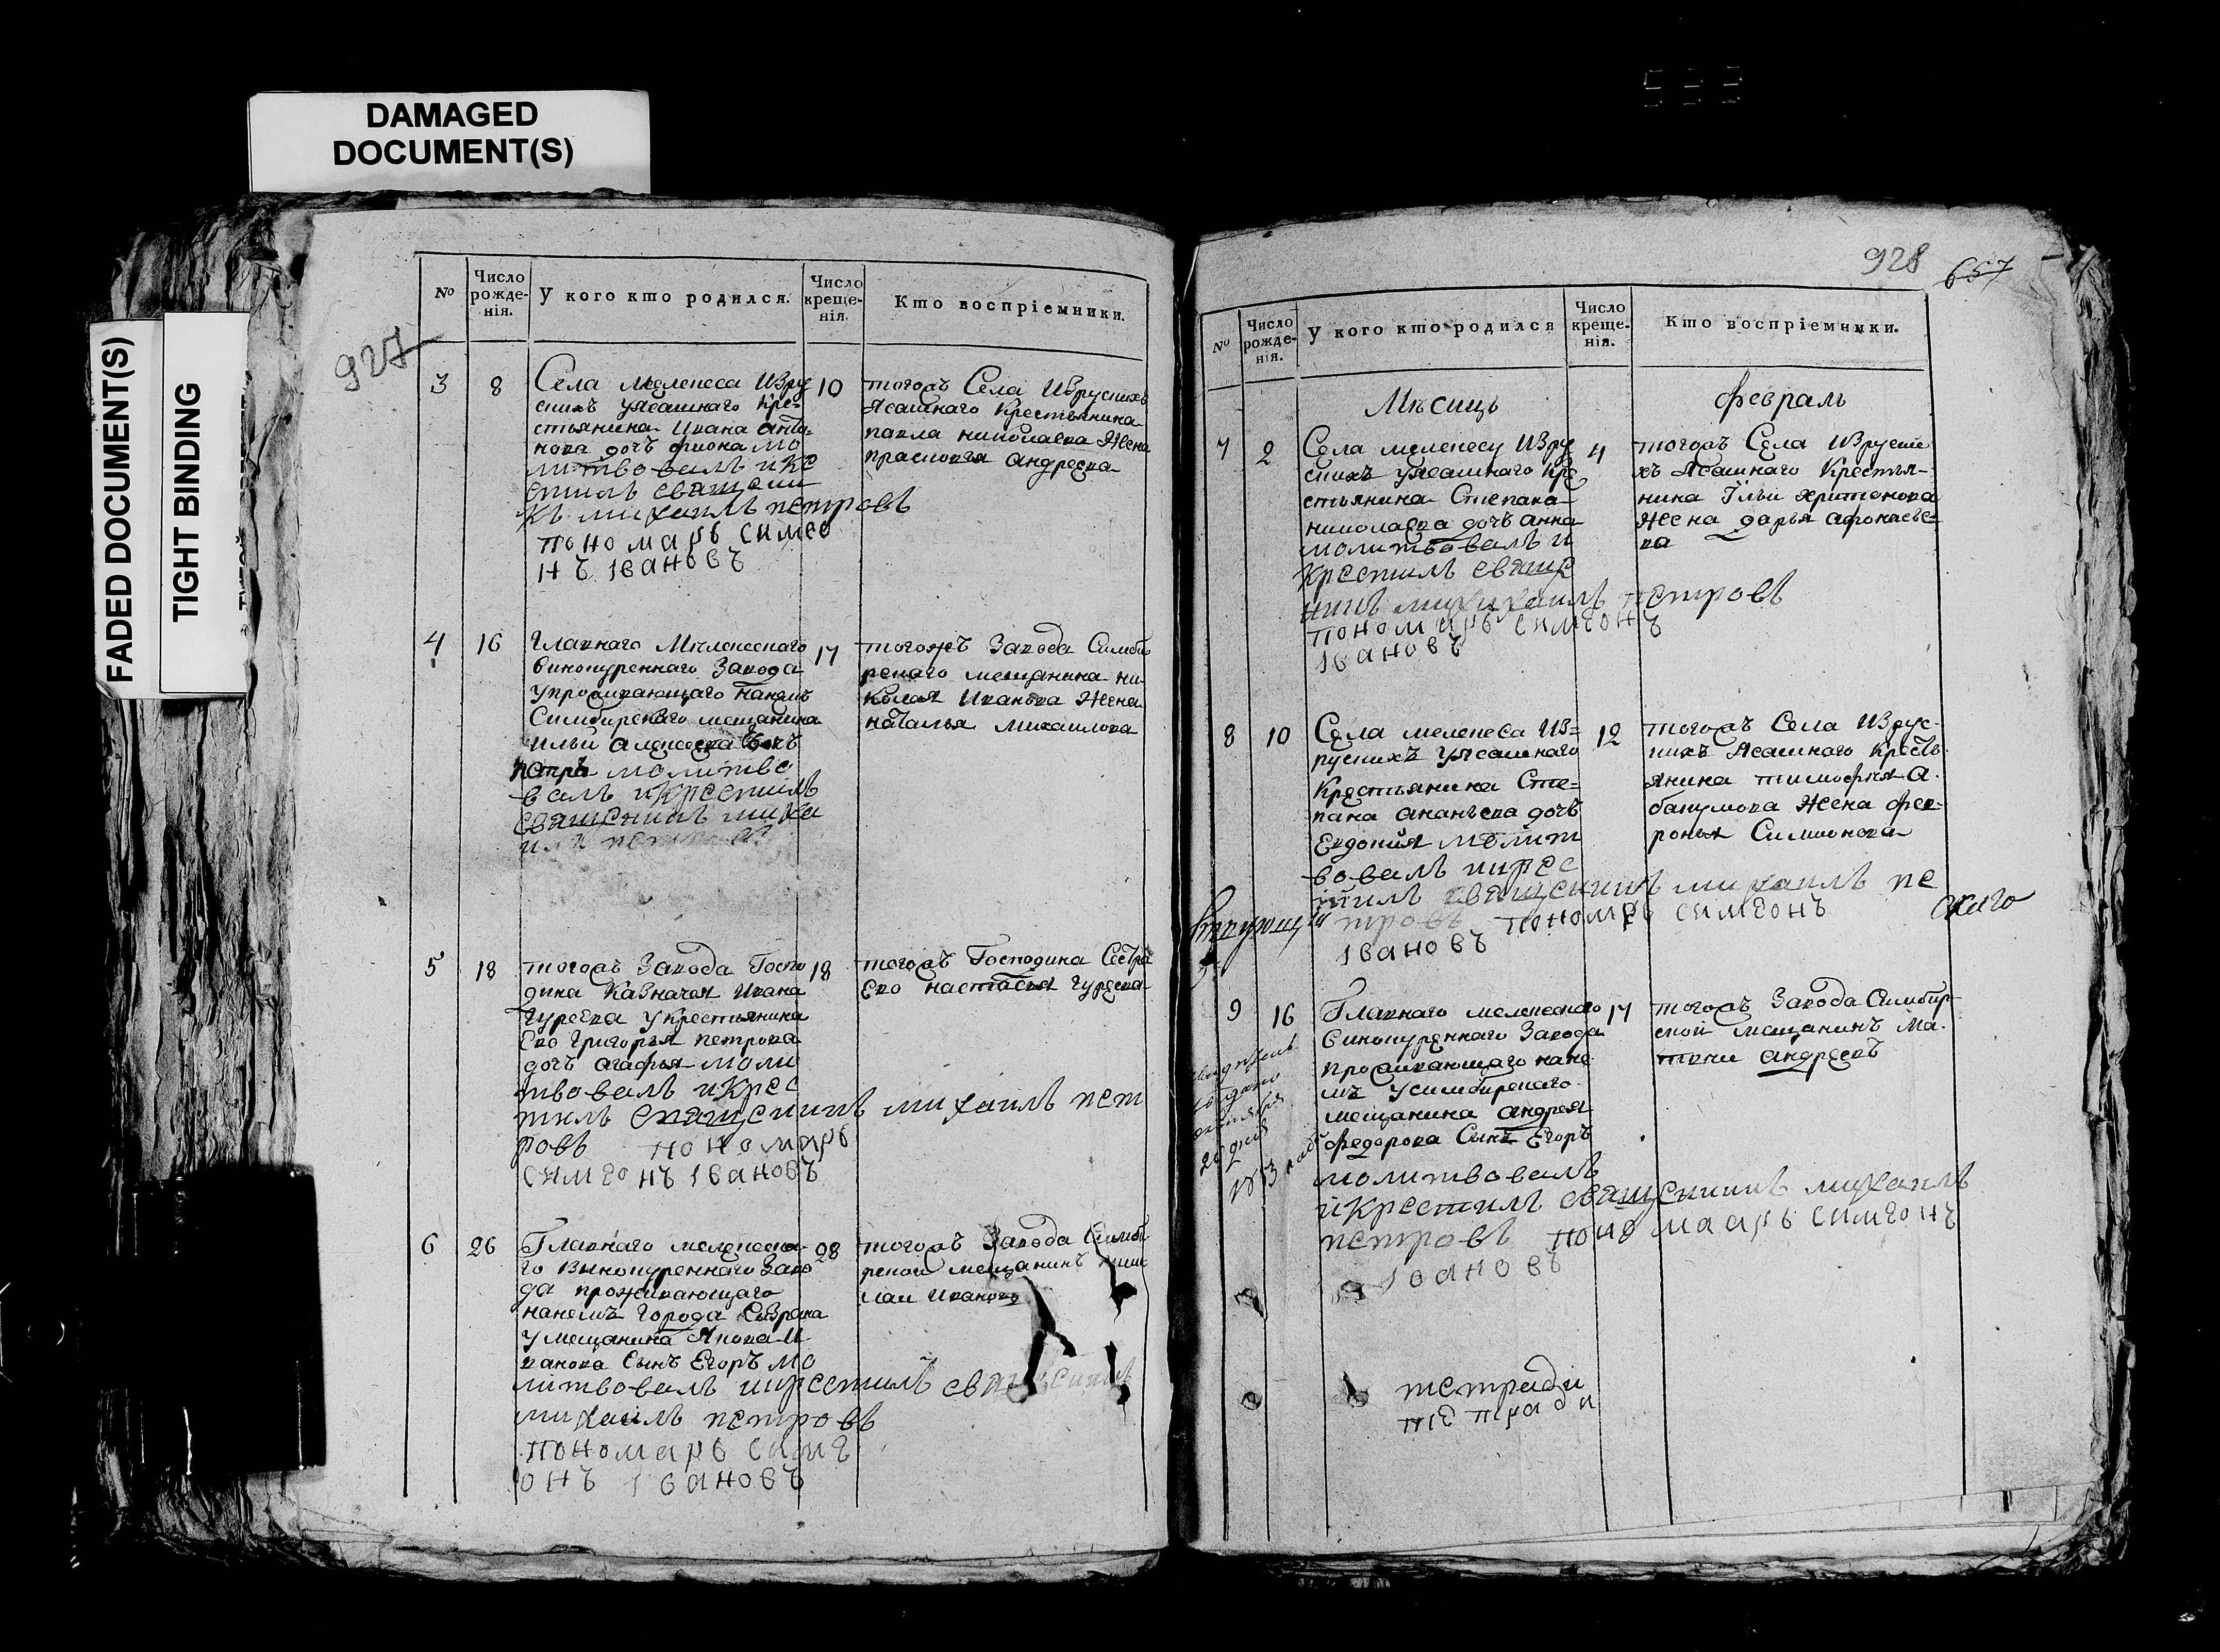 DAMAGED
DOCUMENT(S)
FADED DOCUMENT(S)
TIGHT BINDING
927
№
Число рожде-нія.
У кого кто родился.
Число креще-нія.
Кто воспріемники.
3
8
Села мелекеса Изру
скихъ уясашнаго кре-
стьянина Ивана анто-
нова дочъ фиона мо
литвовалъ икре
стилъ священи
къ михаилъ петровъ
пономарь симео
нъ Iвановъ
10
тогожъ Села Изрускихъ
Ясашнаго крестьянина
павла николаева Жена
прасковья андреева
4
16
главнаго Мелекескаго
винокуреннаго Завода
упроживающаго нанемъ
Симбирскаго мещанина
ильи алексеева
петръ молитво
валъ икрестилъ
священникъ миха
илъ
17
тогожъ Завода Симби
рскаго мещанина ни-
колая Иванова Жена
наталья михаилова
5
18
тогожъ Завода Госпо
дина Казначея Ивана
гурьева укрестьянина
Ево григорья петрова
дочъ агафья моли
твовалъ икрес
тилъ священникъ михаилъ пет
ровъ пономарь
симеонъ Iвановъ
18
тогожъ Господина Сестра
Ево настасья гурьева
6
26
Главнаго мелекеска-
го Винокуреннаго Заво
да проживающаго
нанемъ города Сызрана
умещанина Якова И-
ванова Сынъ Егоръ мо
литвовалъ икрестилъ священникъ
михаилъ петровъ
пономарь симе
онъ Iвановъ
28
тогожъ Завода Симби
рской мещанинъ нико
лаи Ивановъ
928
657
№
Число рожде-нія.
У кого кто родился
Число креще-нія.
Кто воспріемники.
Мѣсицъ
февраль
7
2
Села мелекесу Изру
скихъ уясашнаго кре
стьянина Степана
николаева дочъ анна
молитвовалъ и
крестилъ священ
никъ михихаилъ петровъ
пономарь симеонъ
Iвановъ
4
тогожъ Села Изруски
хъ Ясашнаго Крестья-
нина Iльи харитонова
Жена дарья афонасье-
ва
8
10
Села мелекеса Из=
рускихъ уясашнаго
Крестьянина Сте=
пана ананьева дочъ
Евдокия молит
вовалъ икрес
тилъ священникъ михаилъ пе
тровъ пономрь симеонъ
Iвановъ
12
тогожъ Села Изрус-
кихъ Ясашнаго кресть-
янина тимофея а-
бакумова Жена фев-
ронья Симионова
9
16
Главнаго мелекескаго
Винокуреннаго Завода
проживающаго нане-
мъ усимбирскаго
мещанина андрея
федорова Сынъ Егоръ
молитвовалъ
икрестилъ священникъ михаилъ
петровъ пономаарь симеонъ
Iвановъ
17
тогожъ Завода Симбир-
ской мещанинъ ма-
твеи андреевъ
тетради
тетради